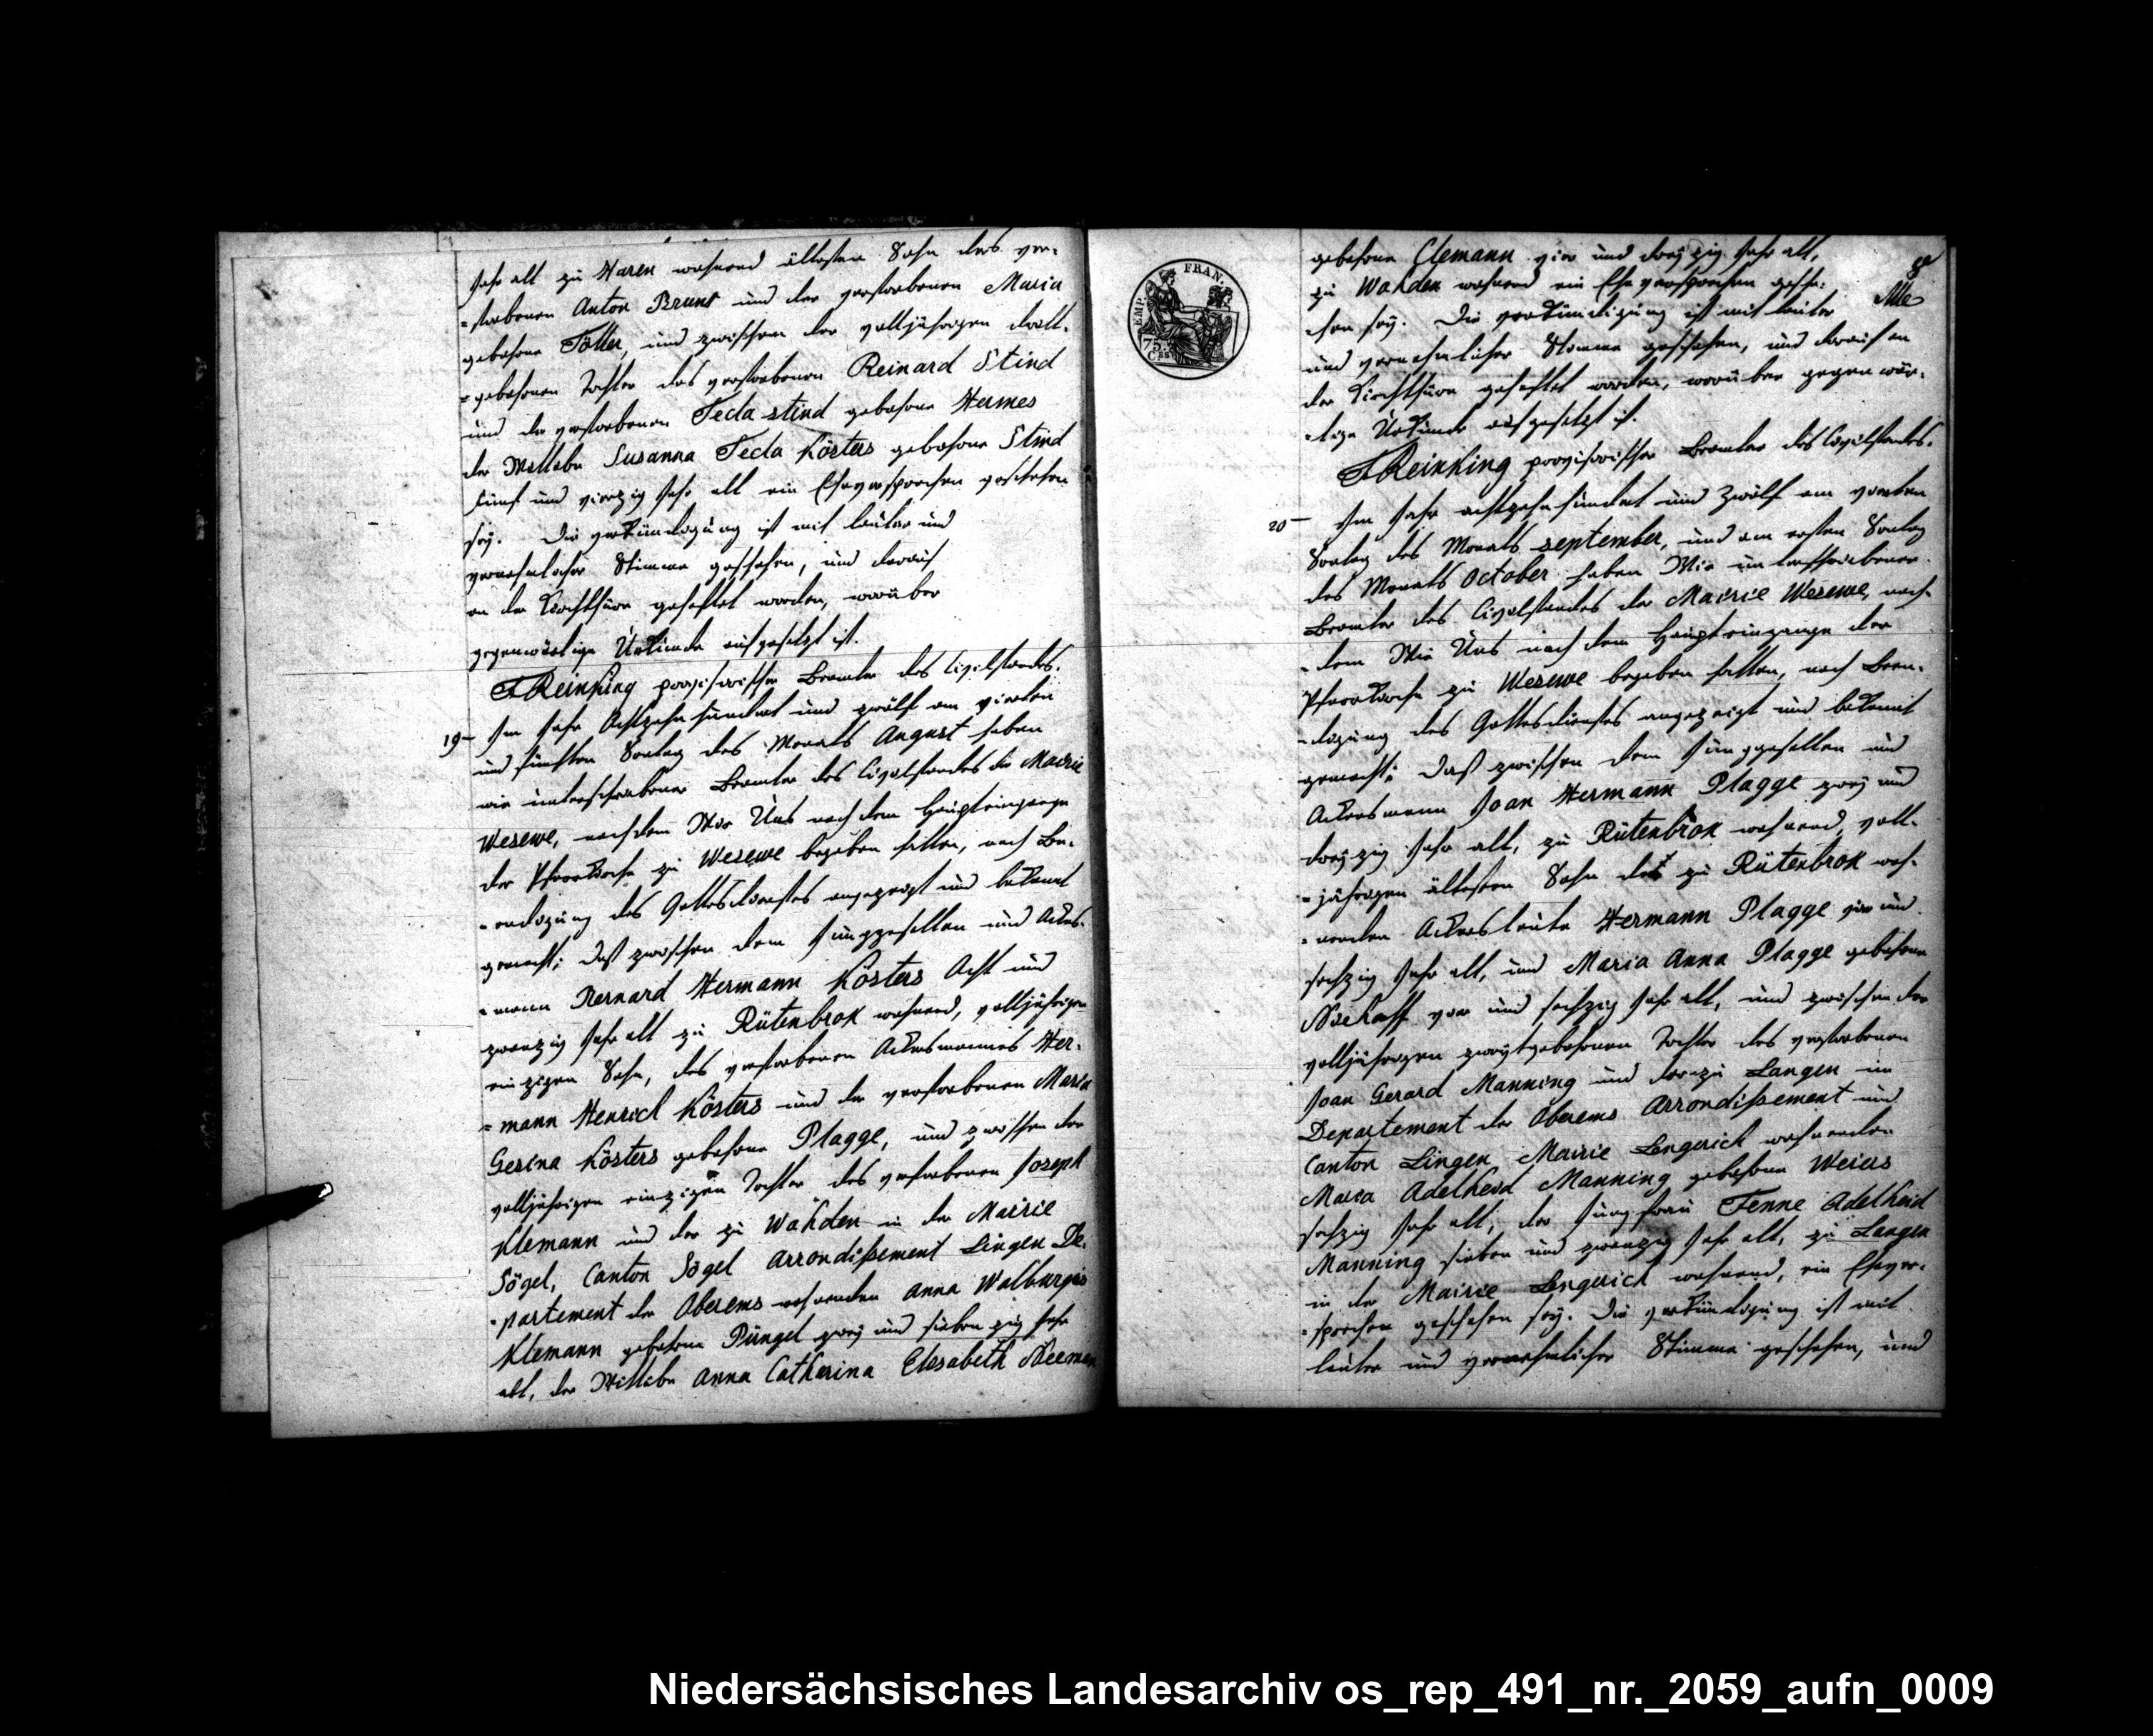 Jahr alt zu Haren wohnend ältesten Sohn des ver-
=storbenen Anton Bruns und der verstorbenen Maria
gebohrne Töller, und zwischen der volljährigen dritt-
=gebohrnen Tochter des verstorbenen Reinard Stind
und der verstorbenen Tecla Stind gebohrne Hermes
der Wittebe Susanna Tecla Kösters gebohrne Stind
fünf und vierzig Jahr alt ein Eheversprechen geschehen
sey. Die Verkündigung ist mit lauter und
vernehmlicher Stimme geschehen, und darauf
an der Kirchthüre geheftet worden, worüber
gegenwärtige Urkunde aufgesetzt ist.
FReinking provisorischer Beamter des Civilstandes.
19- Im Jahr Achtzehnhundert und zwölf am vierten
und fünften Sontag des Monats August haben
wir unterschriebener Beamter des Civilstandes der Mairie
Wesewe, nachdem Wir Uns nach dem Haupteingange
der Pfarrkirche zu Wesewe begeben hatten, nach Be-
-endigung des Gottesdienstes angezeigt und bekannt
gemacht; daß zwischen dem Junggesellen und Ackers-
-mann Bernard Hermann Kösters Acht und
zwanzig Jahr alt zu Rütenbrok wohnend, volljährigen
einzigen Sohn, des verstorbenen Ackersmannes Her-
=mann Henrich Kösters und der verstorbenen Maria
Gesina Kösters gebohrne Plagge, und zwischen der
volljährigen einzigen Tochter des verstorbenen Joseph
Klemann und der zu Wahden in der Mairie
Sögel, Canton Sögel Arrondißement Lingen De-
-partement der Oberems wohnenden Anna Walburgis
Klemann gebohrne Püngel zwey und siebenzig Jahr
alt, der Wittebe Anna Catharina Elisabeth Neeman
FRAN.
EMP.
75.
CES
8
gebohrne Clemann vier und dreyzig Jahr alt,
zu Wahden wohnend ein Eheversprechen gesche-
-hen sey. Die Verkündigung ist mit lauter
und vernehmlicher Stimme geschehen, und darauf an
der Kirchthüre geheftet worden, worüber gegenwär-
-tige Urkunde aufgesetzt ist.
FReinking provisorischer Beamter des Civilstandes.
20- Im Jahr achtzehnhundert und Zwölf am vierten
Sontag des Monats September, und am ersten Sontag
des Monats October haben Wir unterschriebener
Beamter des Civilstandes der Mairie Wesewe, nach-
-dem Wir Uns nach dem Haupteingange der
Pfarrkirche zu Wesewe begeben hatten, nach Been-
-digung des Gottesdienstes angezeigt und bekannt
gemacht; daß zwischen dem Junggesellen und
Ackersmann Joan Hermann Plagge zwey und
dreyzig Jahr alt, zu Rütenbrok wohnend, voll-
-jährigen ältesten Sohn der zu Rütenbrok woh-
-nenden Ackersleute Hermann Plagge vier und
sechzig Jahr alt, und Maria Anna Plagge gebohrne
vier und sechzig Jahr alt, und zwischen der
volljährigen zweytgebohrnen Tochter des verstorbenen
Joan Gerard Manning und der zu Langen im
Departement der Oberems Arrondißement und
Canton Lingen Mairie Lengerich wohnenden
Maria Adelheid Manning gebohrne Weiers
sechzig Jahr alt, der Jungfrau Fenne Adelheid
Manning sieben und zwanzig Jahr alt, zu Langen
in der Mairie Lengerich wohnend, ein Ehever-
=sprechen geschehen sey. Die Verkündigung ist mit
lauter und vernehmlicher Stimme geschehen, und
Niedersächsisches Landesarchiv os_rep_491_nr._2059_aufn_0009